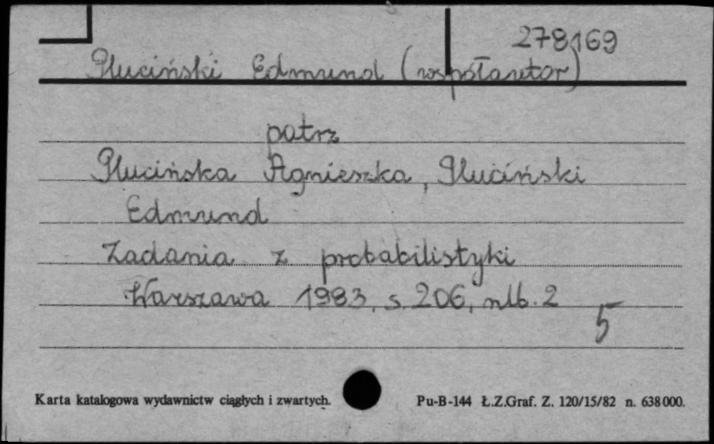 278169
Pluciński Edmund (współautor)
patrz
Plucińska Agnieszka, Pluciński
Edmund
Zadania z probabilistyki
Warszawa 1983, s. 206, nlb. 2
5
Karta katalogowa wydawnictw ciągłych i zwartych. Pu-B-144 Ł.Z.Graf. Z. 120/15/82 n. 638000.